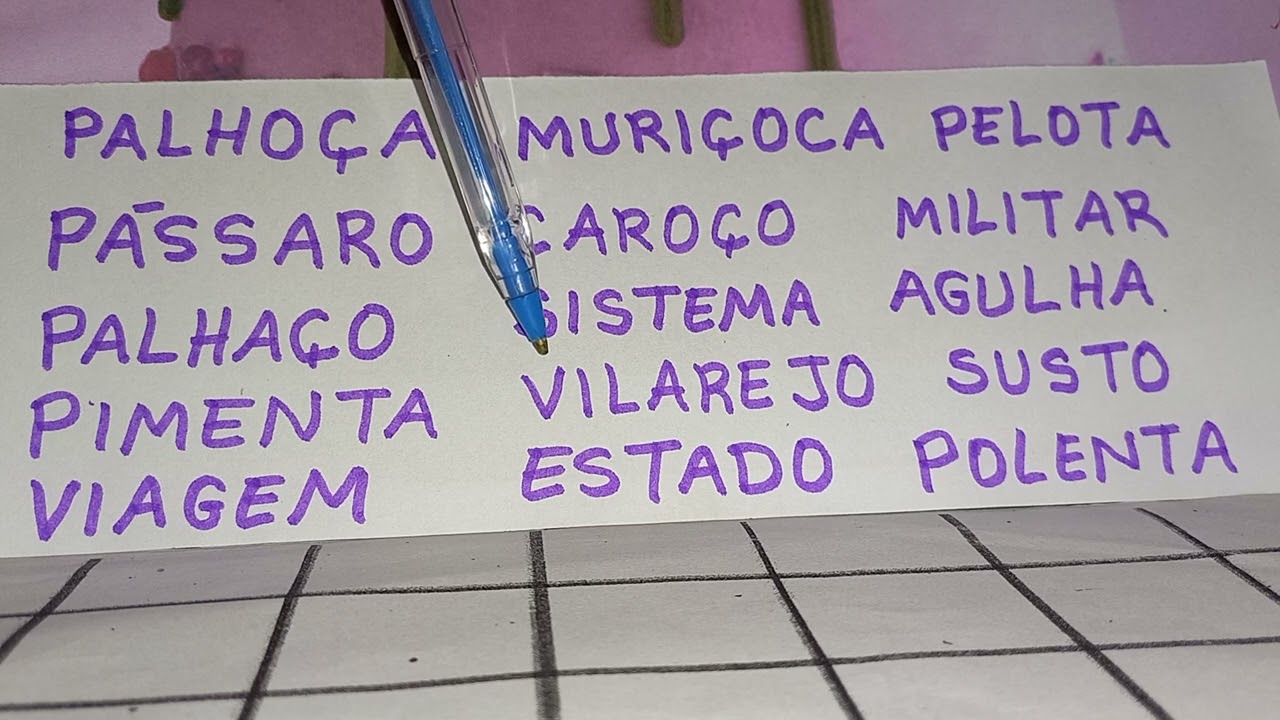 PALHOÇA MURIÇOCA PELOTA
PÁSSARO CAROÇO MILITAR
PALHAÇO SISTEMA AGULHA
PIMENTA VILAREJO SUSTO
VIAGEM ESTADO POLENTA